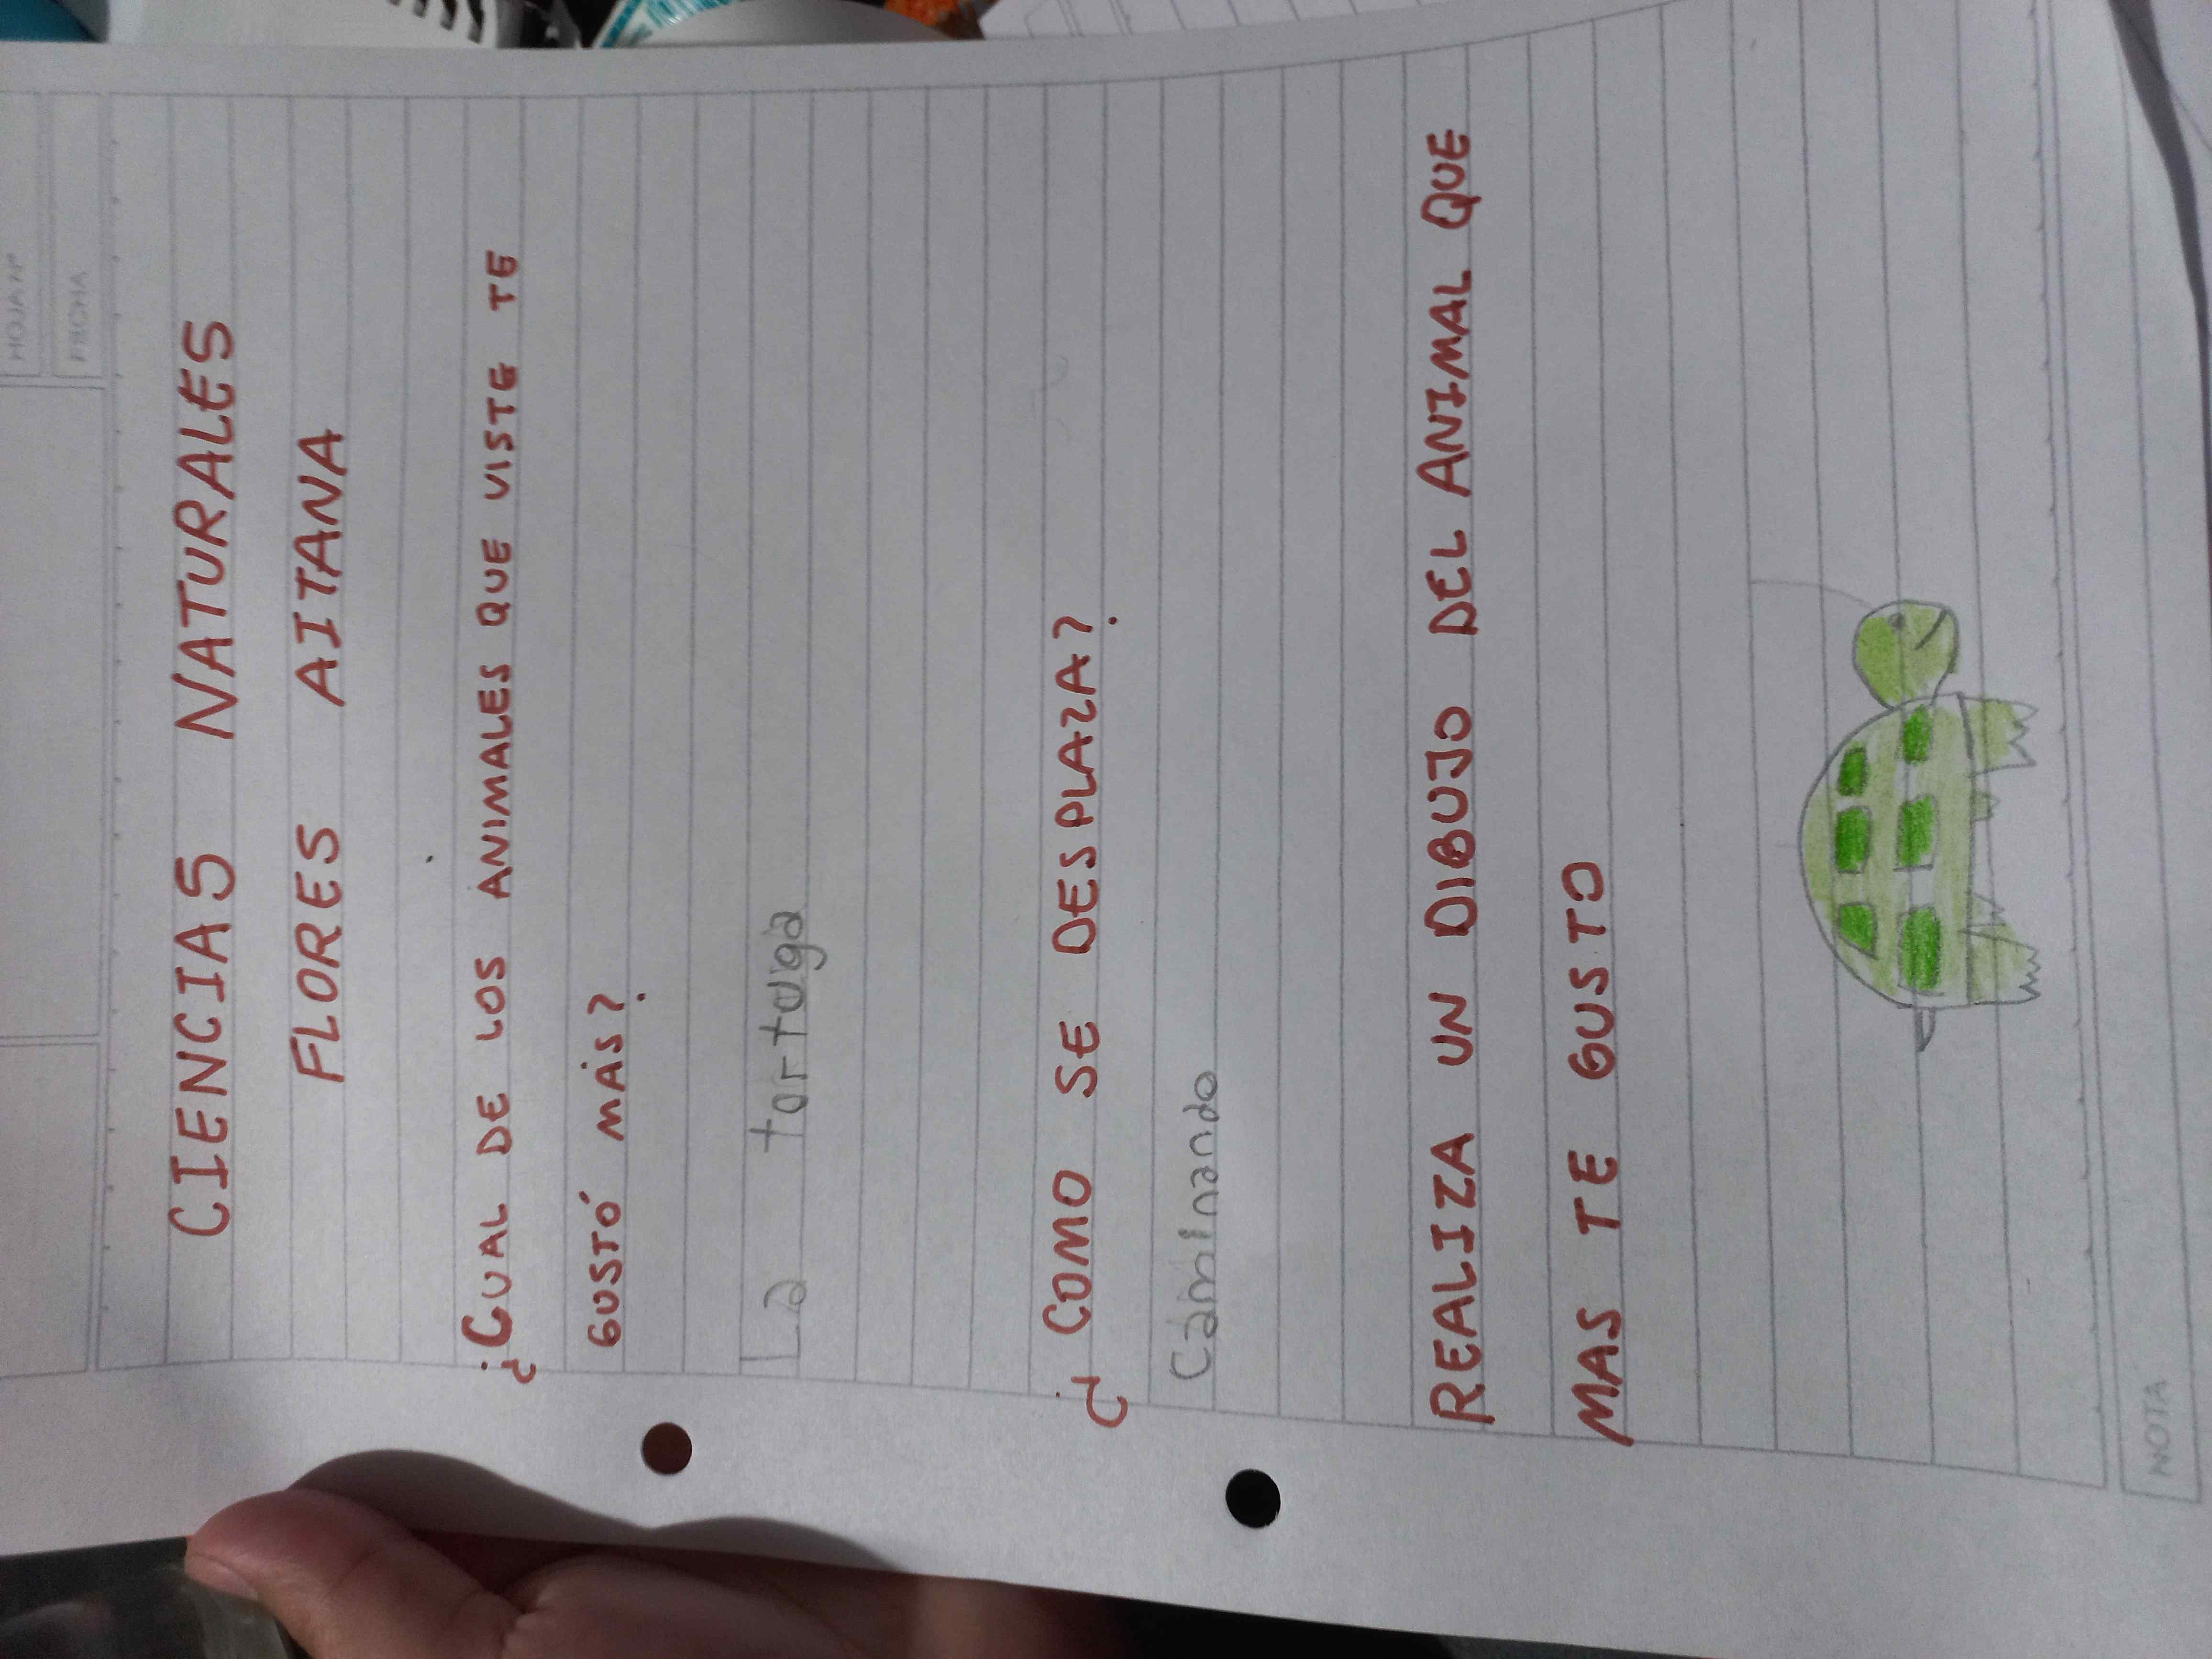 HOJA Nº
FECHA
CIENCIAS NATURALES
FLORES AITANA
¿CUAL DE LOS ANIMALES QUE VISTE TE
GUSTÓ MÁS?
La tortuga
¿COMO SE DESPLAZA?
Caminando
REALIZA UN DIBUJO DEL ANIMAL QUE
MAS TE GUSTO
NOTA